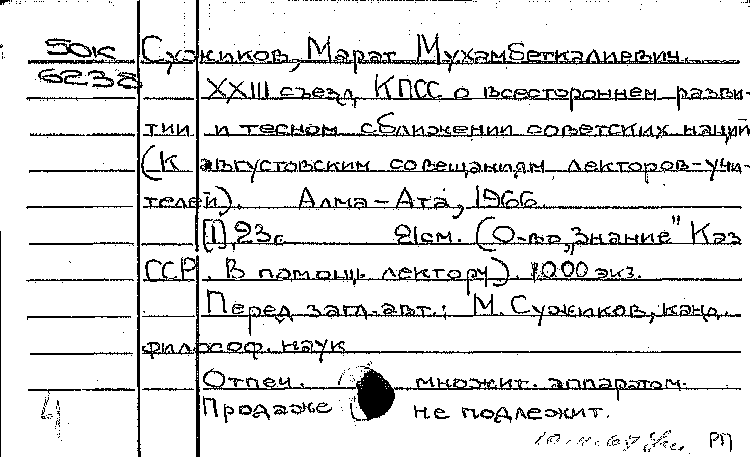 50к Сужиков, Марат Мухамбеткалиевич.
6238
XXIII съезд КПСС о всестороннем разви-
тии и тесном сближении советских наций
(К августовским совещаниям лекторов-учи-
телей). Алма-Ата, 1966.
[1], 23с. 21см. (О-во „Знание" Каз
ССР. В помощь лектору). 1000 экз.
Перед загл. авт.: М. Сужиков, канд.
философ. наук
Отпеч. множит. аппаратом.
Продаже не подлежит.
4
РП